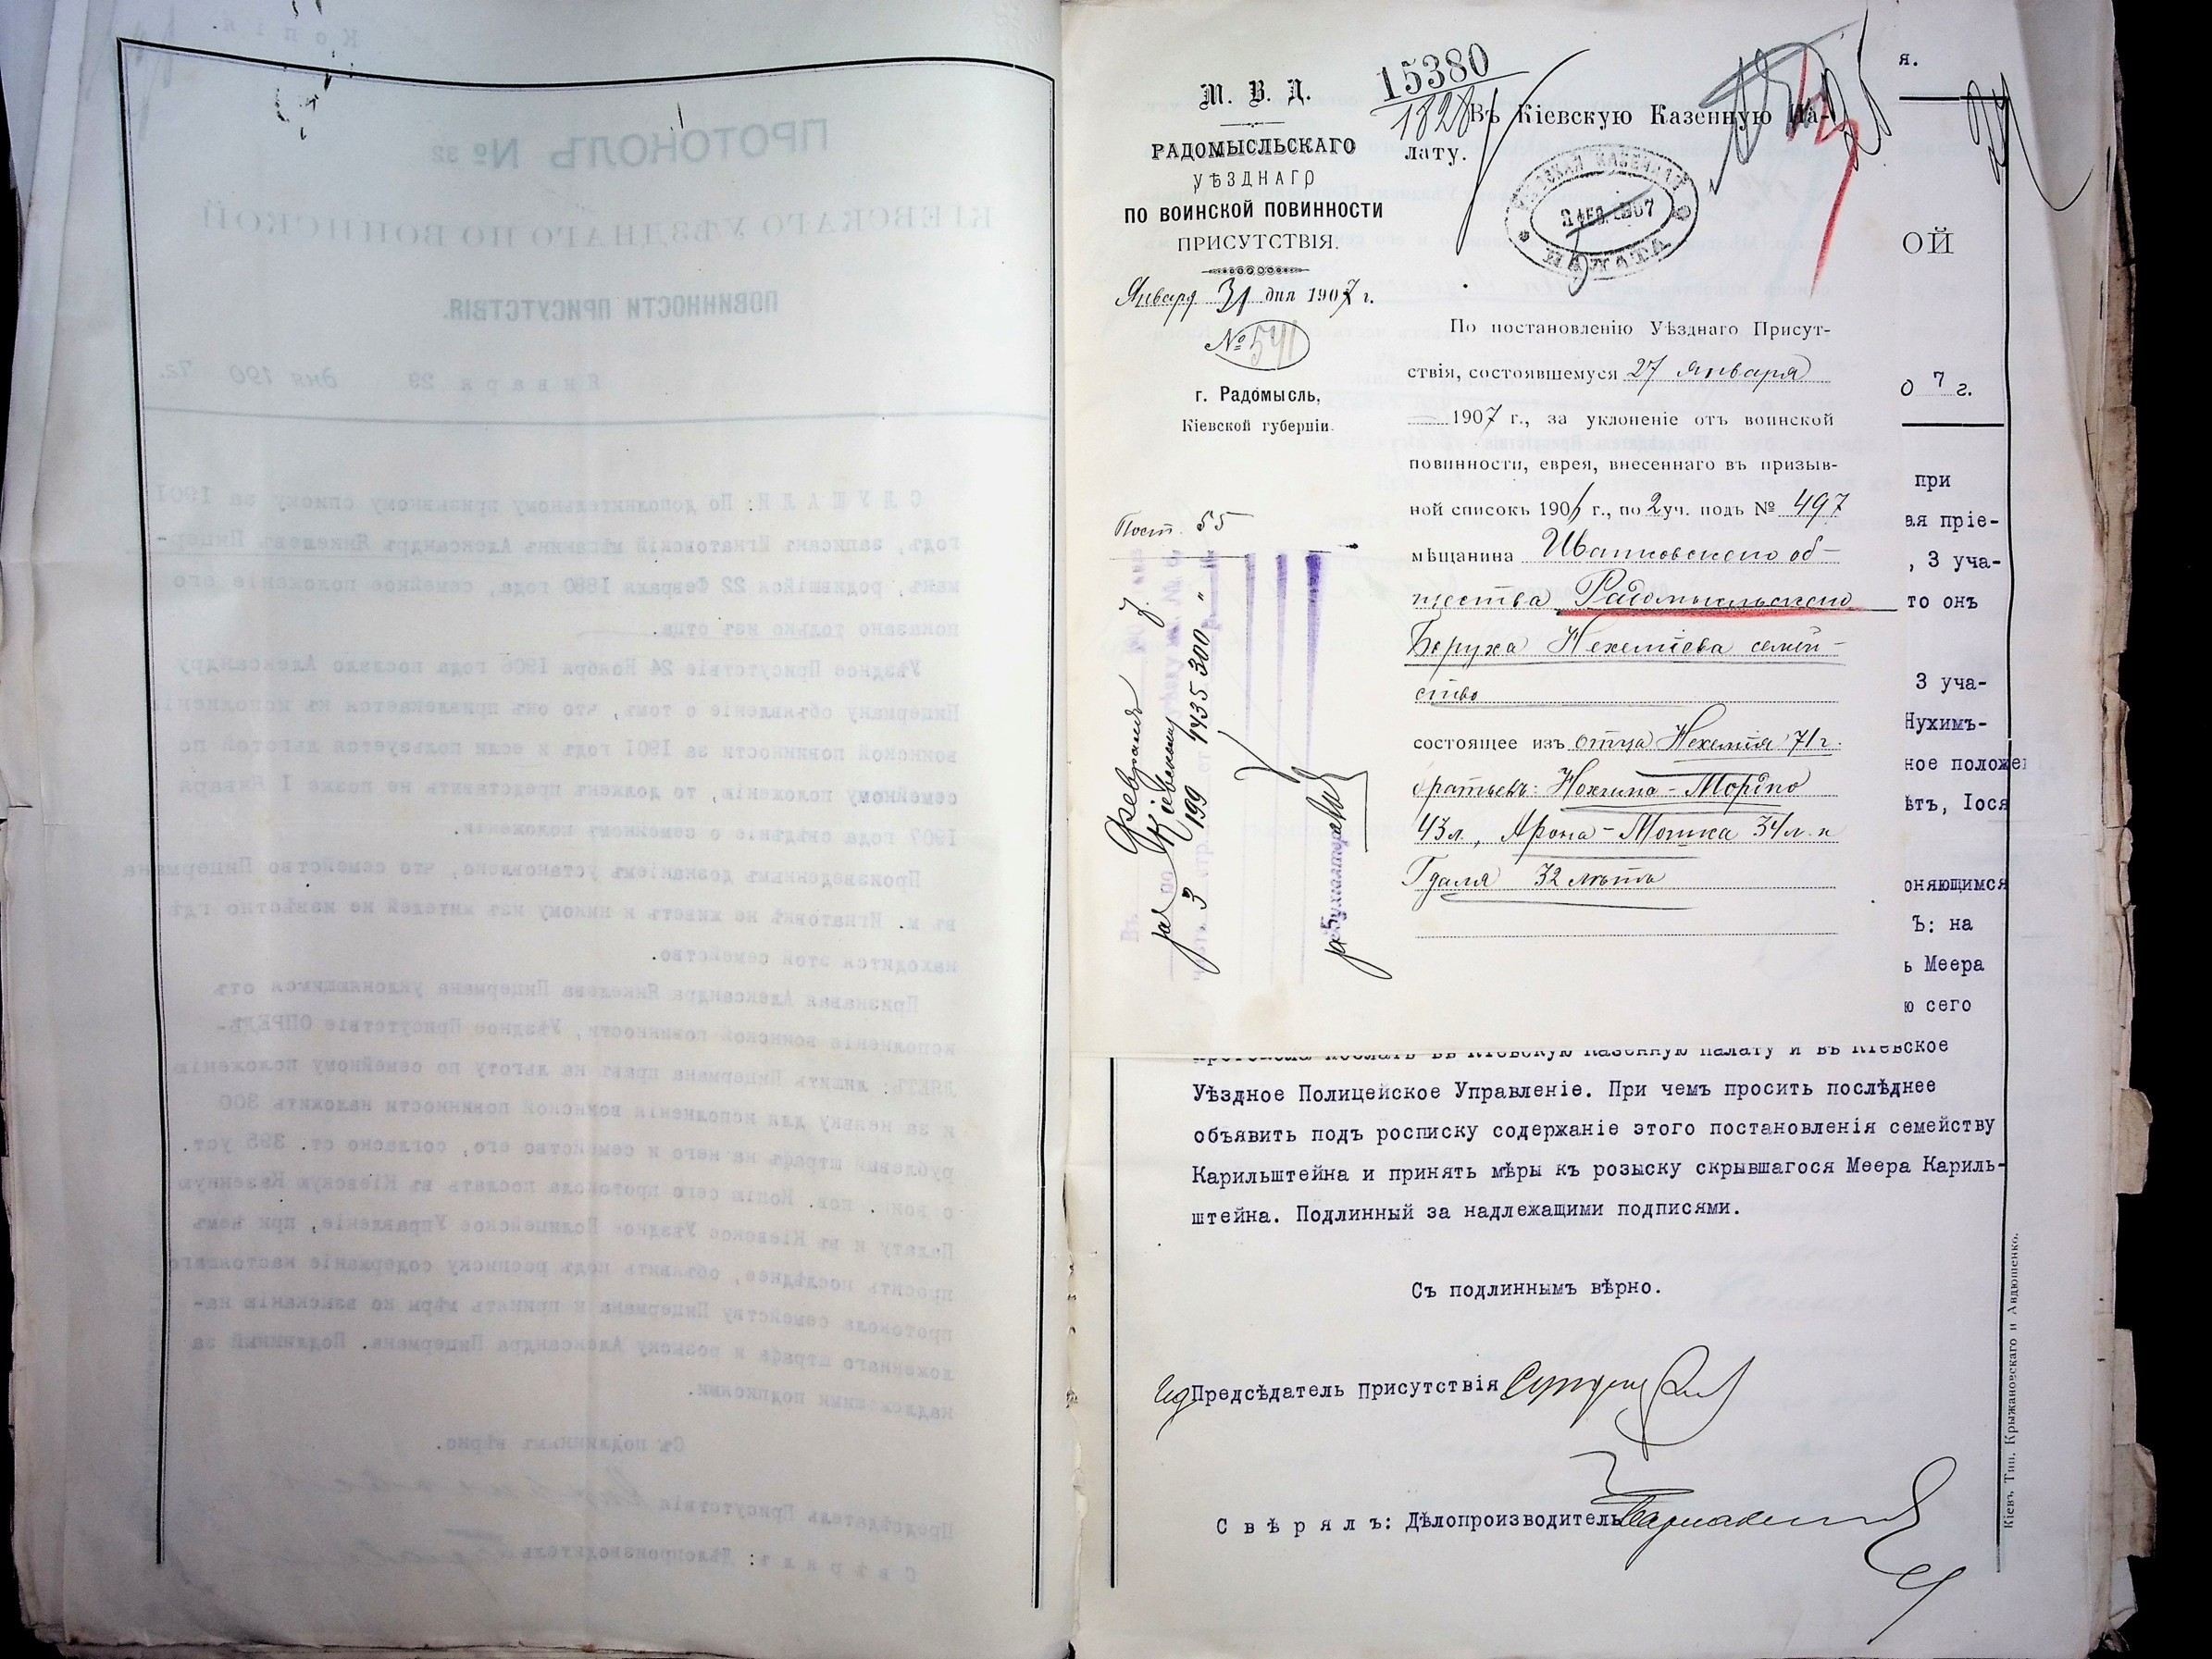 М. В. Д.
РАДОМЫСЛЬСКАГО
УѢЗДНАГО
ПО ВОИНСКОЙ ПОВИННОСТИ
ПРИСУТСТВІЯ.
Января 31 дня 1907 г.
№ 541
г. Радомысль,
Кіевской губерніи.
Пост. 55
Февраля 7
за по Кіевскому
3 199 1435 300 "
за Бухалтера
15380
1328
Въ Кіевскую Казенную Па-
лату.
КІЕВСКАЯ КАЗЕННАЯ
ПАЛАТА
По постановленію Уѣзднаго Присут-
ствія, состоявшемуся 27 января
1907 г., за уклоненіе отъ воинской
повинности, еврея, внесеннаго въ призыв-
ной списокъ 1901 г., по 2 уч. подъ № 497
мѣщанина Иванковскаго об-
щества Радомысльскаго
Боруха Нехеміева семей-
ство
состоящее изъ отца Нехемія 71 г.
братьевъ: Нохима-Мордко
43 л., Арона-Мошка 34 л. и
Гдаля 32 лѣтъ
я.
ОЙ
0 7 г.
при
ая пріе-
, 3 уча-
то онъ
3 уча-
Нухимъ-
ное положен
ѣтъ, Іося
оняющимся
Ъ: на
ь Меера
ю сего
протокола послать въ Кіевскую Казенную палату и въ Кіевское
Уѣздное Полицейское Управленіе. При чемъ просить послѣднее
объявить подъ росписку содержаніе этого постановленія семейству
Карильштейна и принять мѣры къ розыску скрывшагося Меера Кариль-
штейна. Подлинный за надлежащими подписями.
Съ подлиннымъ вѣрно.
Предсѣдатель Присутствія
Свѣрялъ: Дѣлопроизводитель
Кіевъ, Тип. Крыжановскаго и Авдюшенко.
Копія.
ПРОТОКОЛЪ № 32
КІЕВСКАГО УѢЗДНАГО ПО ВОИНСКОЙ
ПОВИННОСТИ ПРИСУТСТВІЯ.
Января 29 дня 190 7г.
СЛУШАЛИ: По дополнительному призывному списку за 1901
годъ, записанъ Игнатовскій мѣщанинъ Александръ Янкелевъ Пицер-
манъ, родившійся 22 Февраля 1880 года, семейное положеніе его
показано только изъ отца.
Уѣздное Присутствіе 24 Ноября 1906 года послало Александру
Пицерману объявленіе о томъ, что онъ привлекается къ исполненію
воинской повинности за 1901 годъ и если пользуется льготой по
семейному положенію, то долженъ представить не позже 1 Января
1907 года свѣдѣніе о семейномъ положеніи.
Произведеннымъ дознаніемъ установлено, что семейство Пицермана
въ м. Игнатовкѣ не живетъ и никому изъ жителей не извѣстно гдѣ
находится этой семейство.
Признавая Александра Янкелева Пицермана уклоняющимся отъ
исполненія воинской повинности, Уѣздное Присутствіе ОПРЕДѢ-
ЛЯЕТЪ: лишить Пицермана права на льготу по семейному положенію
и за неявку для исполненія воинской повинности наложить 300
рублевый штрафъ на него и семейство его, согласно ст. 395 уст.
о воин. пов. Копію сего протокола послать въ Кіевскую Казенную
Палату и въ Кіевское Уѣздное Полицейское Управленіе, при чемъ
просить послѣднее, объявить подъ росписку содержаніе настоящаго
протокола семейству Пицермана и принять мѣры ко взысканію на-
ложеннаго штрафа и розыску Александра Пицермана. Подлинный за
надлежащими подписями.
Съ подлиннымъ вѣрно.
Предсѣдатель Присутствія
Свѣрялъ: Дѣлопроизводитель